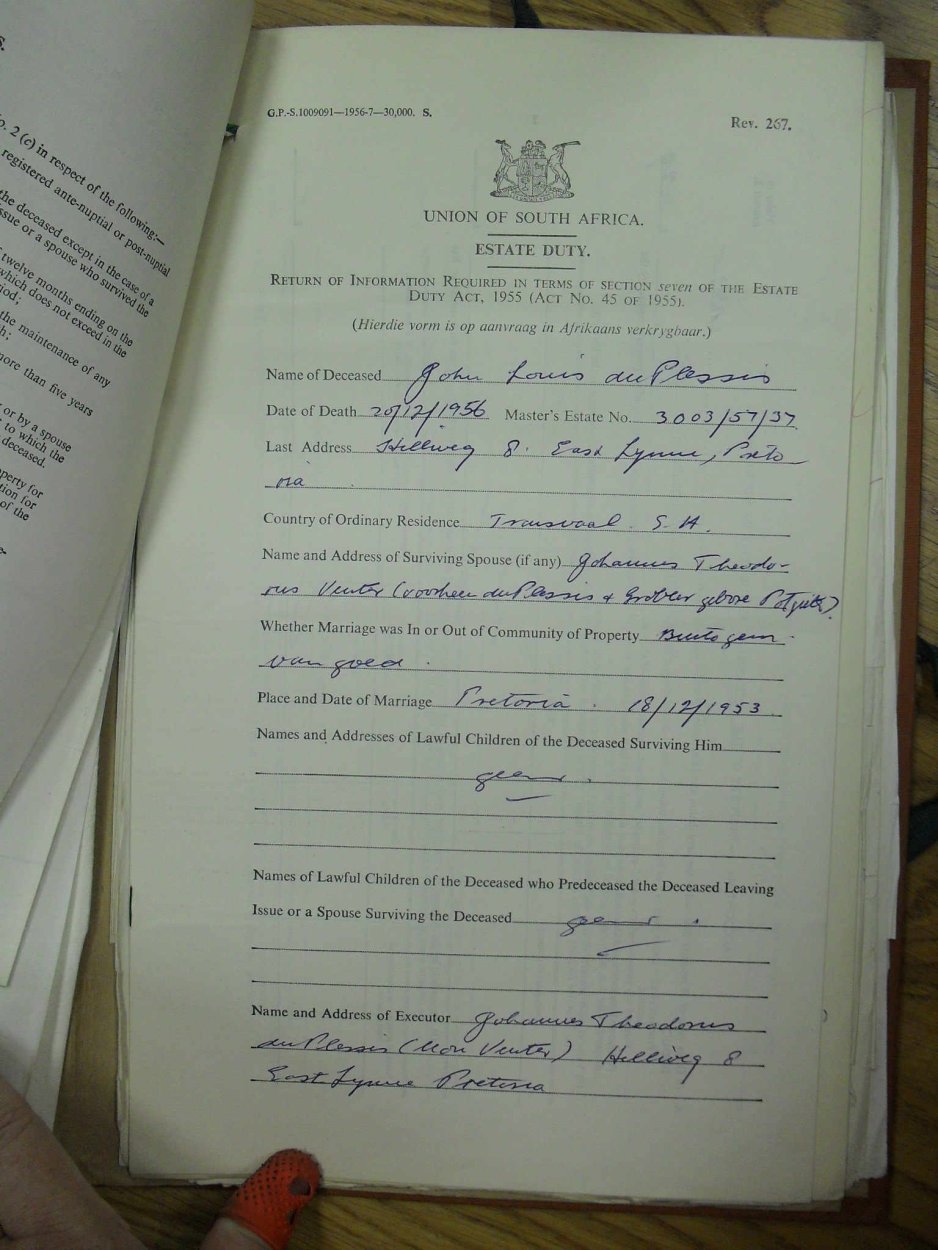 S.
o. 2 (c) in respect of the following:—
registered ante-nuptial or post-nuptial
the deceased except in the case of a
issue or a spouse who survived the
twelve months ending on the
which does not exceed in the
riod;
the maintenance of any
h;
more than five years
or by a spouse
to which the
deceased.
operty for
tion for
of the
e-
G.P.-S.1009091—1956-7—30,000. S.
Rev. 267.
UNION OF SOUTH AFRICA.
ESTATE DUTY.
RETURN OF INFORMATION REQUIRED IN TERMS OF SECTION seven OF THE ESTATE
DUTY ACT, 1955 (ACT NO. 45 OF 1955).
(Hierdie vorm is op aanvraag in Afrikaans verkrygbaar.)
Name of Deceased John Louis du Plessis
Date of Death 20/12/1956 Master's Estate No. 3003/57/37
Last Address Hellweg 8. East Lynne, Preto
ria
Country of Ordinary Residence Transvaal S.A.
Name and Address of Surviving Spouse (if any) Johannes Theodo-
rus Venter (voorheen du Plessis & Grobler gebore
Whether Marriage was In or Out of Community of Property Buite gem.
van goed.
Place and Date of Marriage Pretoria. 18/12/1953
Names and Addresses of Lawful Children of the Deceased Surviving Him
geen.
Names of Lawful Children of the Deceased who Predeceased the Deceased Leaving
Issue or a Spouse Surviving the Deceased geen.
Name and Address of Executor Johannes Theodorus
du Plessis (Nou Venter) Hellweg 8
East Lynne Pretoria